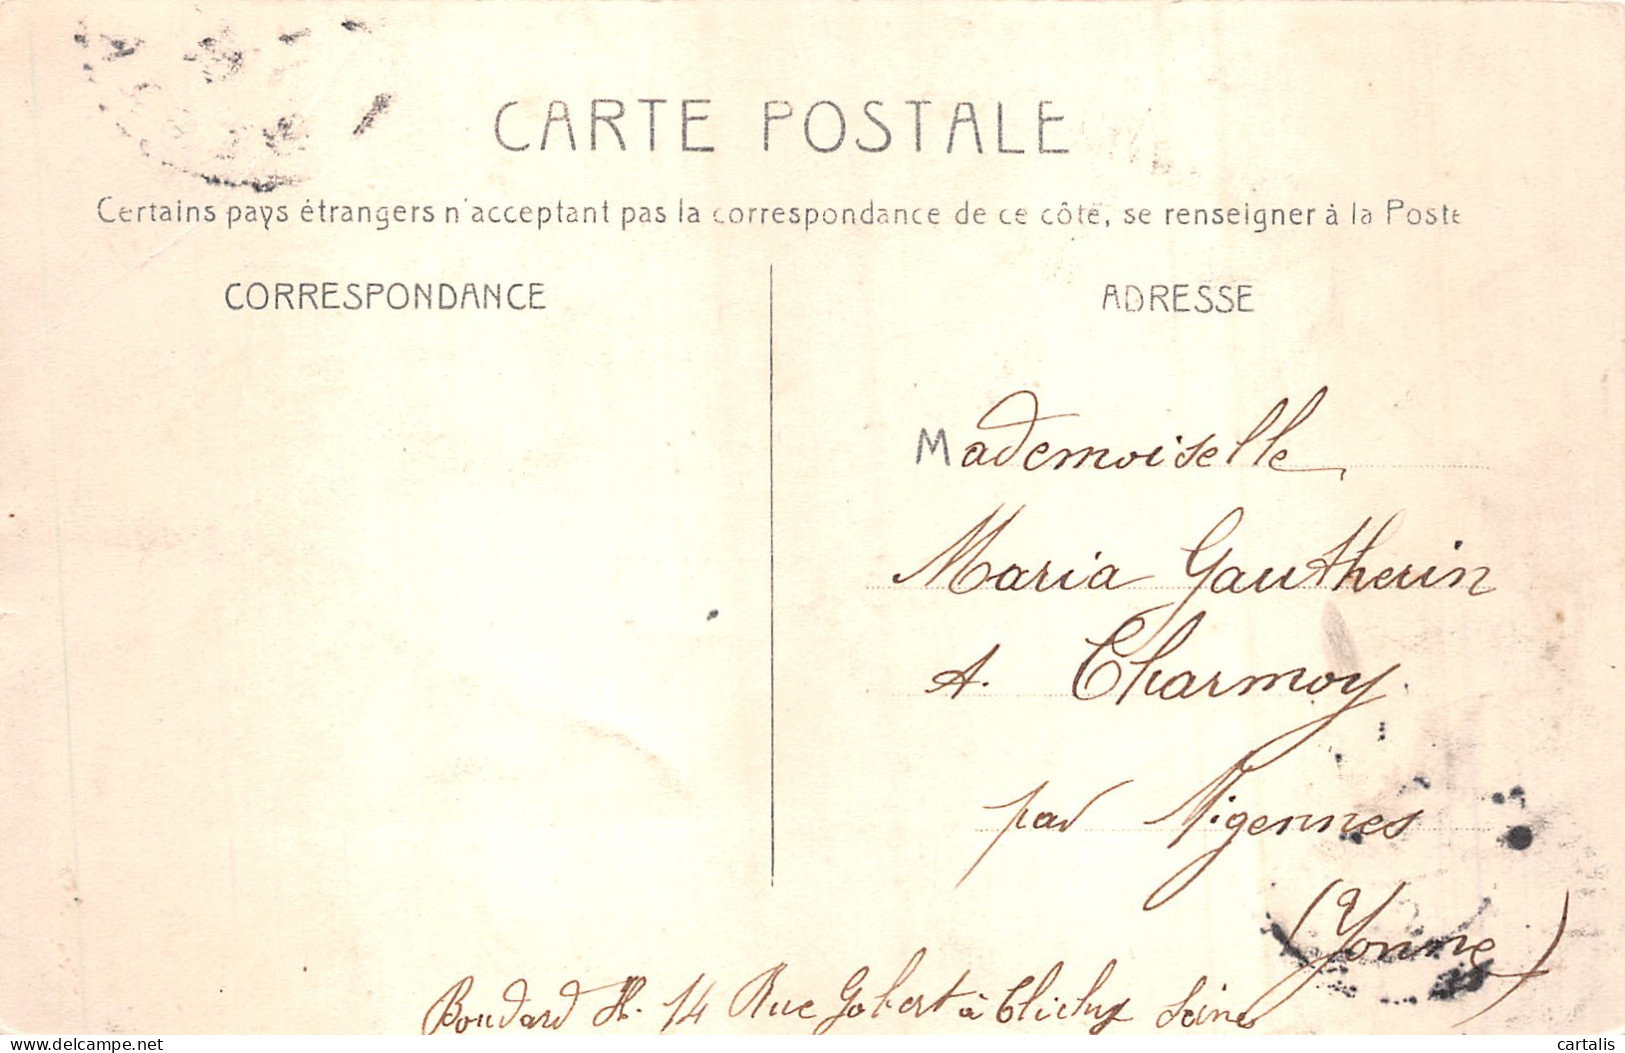 CARTE POSTALE
Certains pays étrangers n'acceptant pas la correspondance de ce côté, se renseigner à la Poste
CORRESPONDANCE
ADRESSE
Mademoiselle
Maria Gautherin
A. Charmoy
par Migennes
(Yonne)
Boudard H. 14 Rue Gobert à Clichy Seine
www.delcampe.net
cartalis